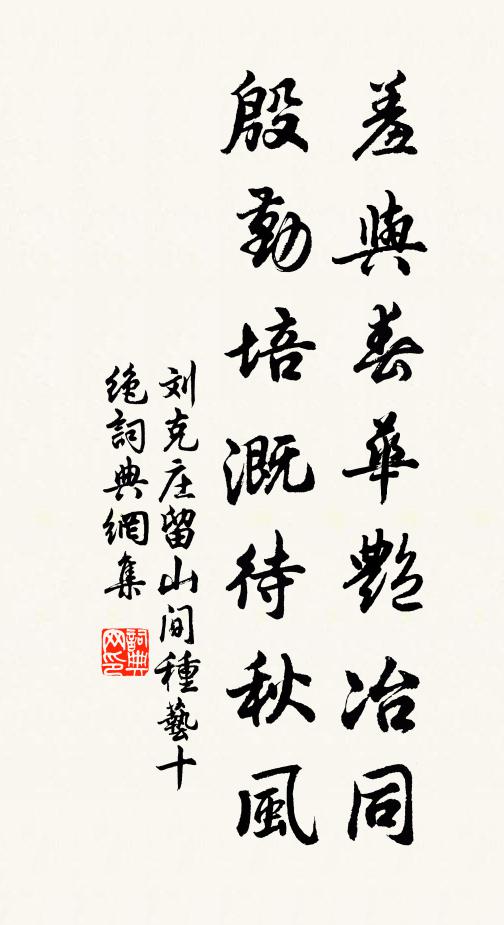 羞與春華艷冶同
殷勤培溉待秋風
刘克庄留山间種藝十
绝詞典網集
詞典网印